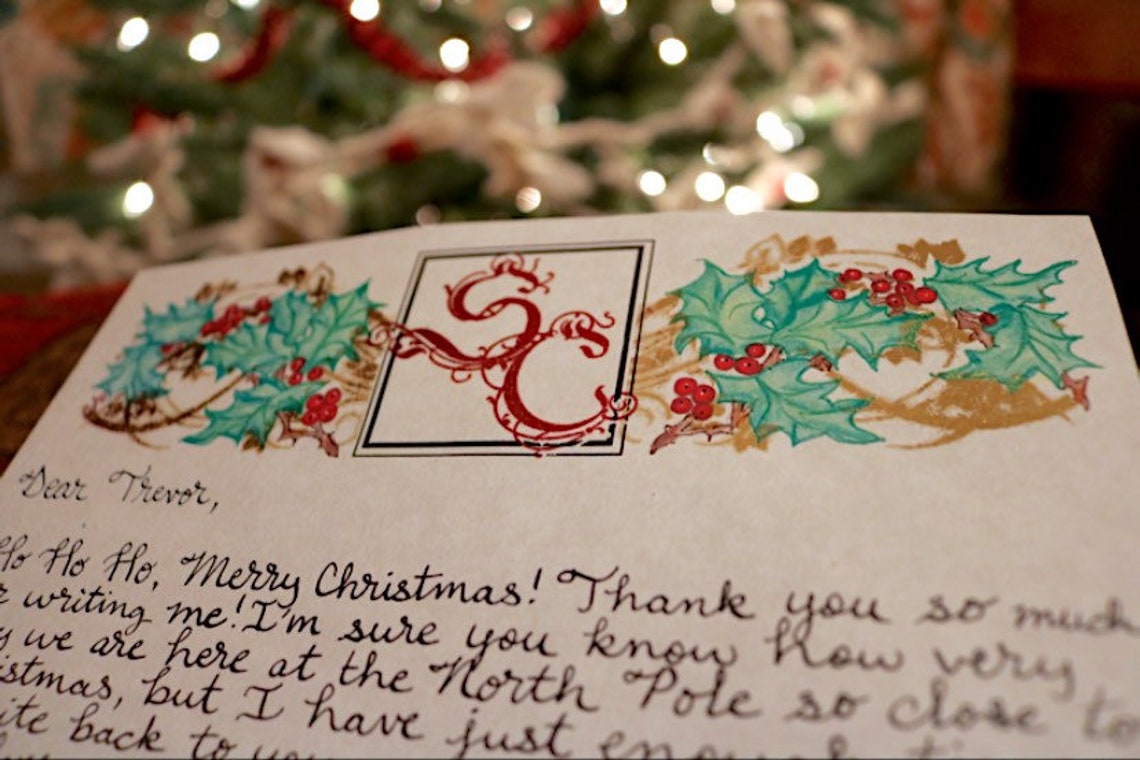 SC
Dear Trevor,
Ho Ho Ho, Merry Christmas! Thank you so much
writing me! I'm sure you know how very
we are here at the North Pole so close to
istmas, but I have just enough
ite back to you